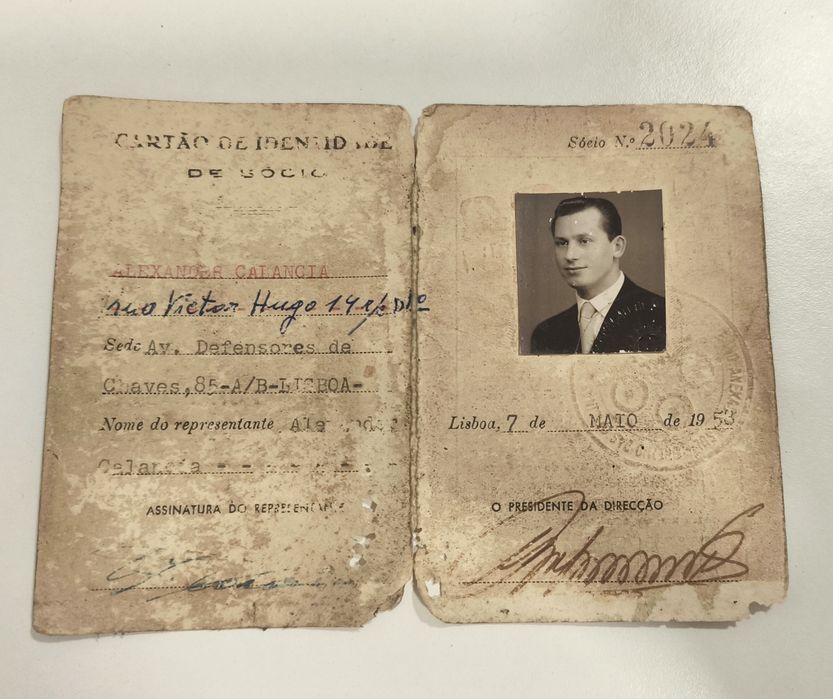 CARTÃO DE IDENTIDADE
DE SÓCIO
ALEXANDER CALANCIA
rua Victor Hugo 14 r/c Dtº
Sede Av. Defensores de
Chaves,85-A/B-LISBOA-
Nome do representante Alexander
Calancia - - - - - -
ASSINATURA DO REPRESENTANTE
Sócio N.º 2024
Lisboa, 7 de MAIO de 1953
O PRESIDENTE DA DIRECÇÃO